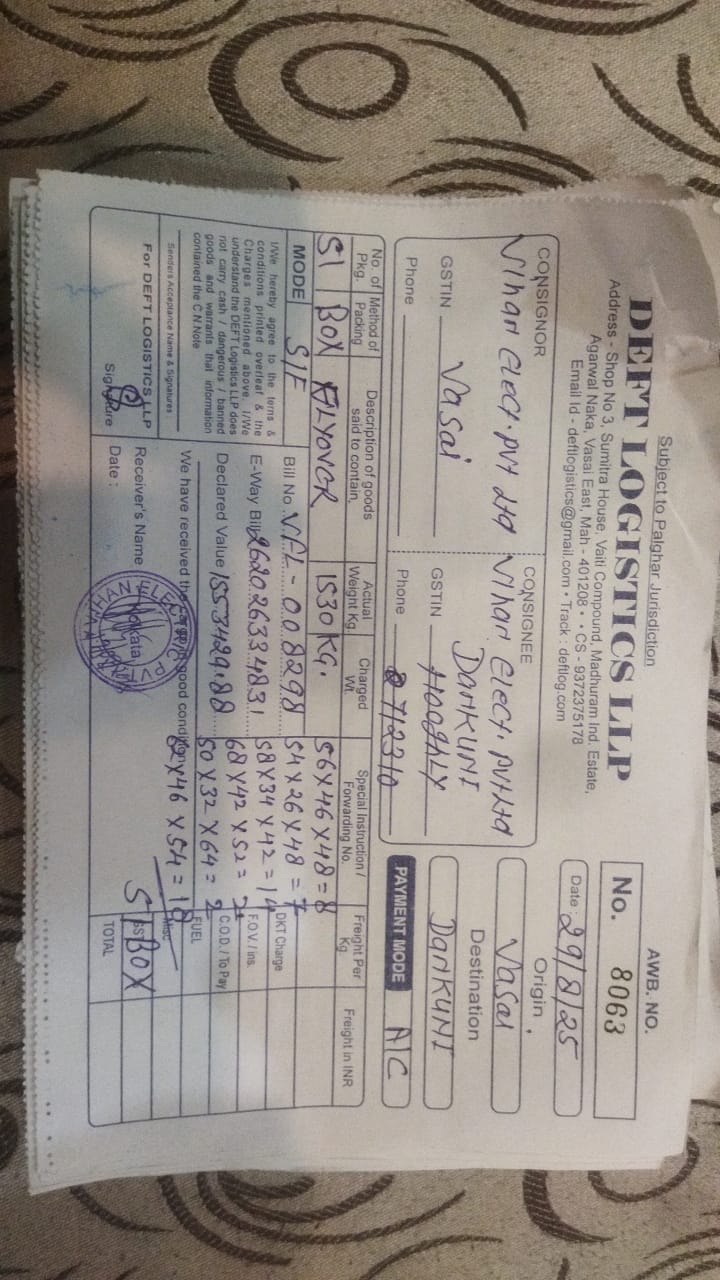 Subject to Palghar Jurisdiction
DEFT LOGISTICS LLP
Address - Shop No 3, Sumitra House, Vaiti Compound, Madhuram Ind. Estate,
Agarwal Naka, Vasai East, Mah - 401208 • • CS - 9372375178
Email Id - deftlogistics@gmail.com • Track : deftlog.com
AWB. NO.
No. 8063
Date : 29/8/25
CONSIGNOR
Vihan Elect. PVt Ltd
Vasai
GSTIN
Phone
CONSIGNEE
Vihan Elect. PVt Ltd
DanKUNI
GSTIN HOOGHLY
Phone 712310
Origin
Vasai
Destination
DanKUNI
PAYMENT MODE A/C
No. of Pkg. Method of Packing Description of goods said to contain, Actual Weight Kg. Charged Wt. Special Instruction / Forwarding No. Freight Per Kg. Freight in INR
51 BOX 1530 KG. 56 X 46 X 48 = 8
MODE S/F
Bill No. 008298 54 X 26 X 48 = 7
E-Way Bill 262026334831 58 X 34 X 42 = 14
Declared Value 1553429.88 68 X 42 X 52 = 2
50 X 32 X 64 = 2
X 46 X 54 = 18
51 BOX
DKT Charge
F.O.V / Ins.
C.O.D. / To Pay
FUEL
Misc
TOTAL
I/We hereby agree to the terns &
conditions printed overleaf & the
Charges mentioned above. I/We
understand the DEFT Logistics LLP does
not carry cash / dangerous / banned
goods and warrants that information
contained the C N Note
Senders Acceptance Name & Signatures
For DEFT LOGISTICS LLP
Signature
We have received the good condition
Receiver's Name
Date :
Kolkata